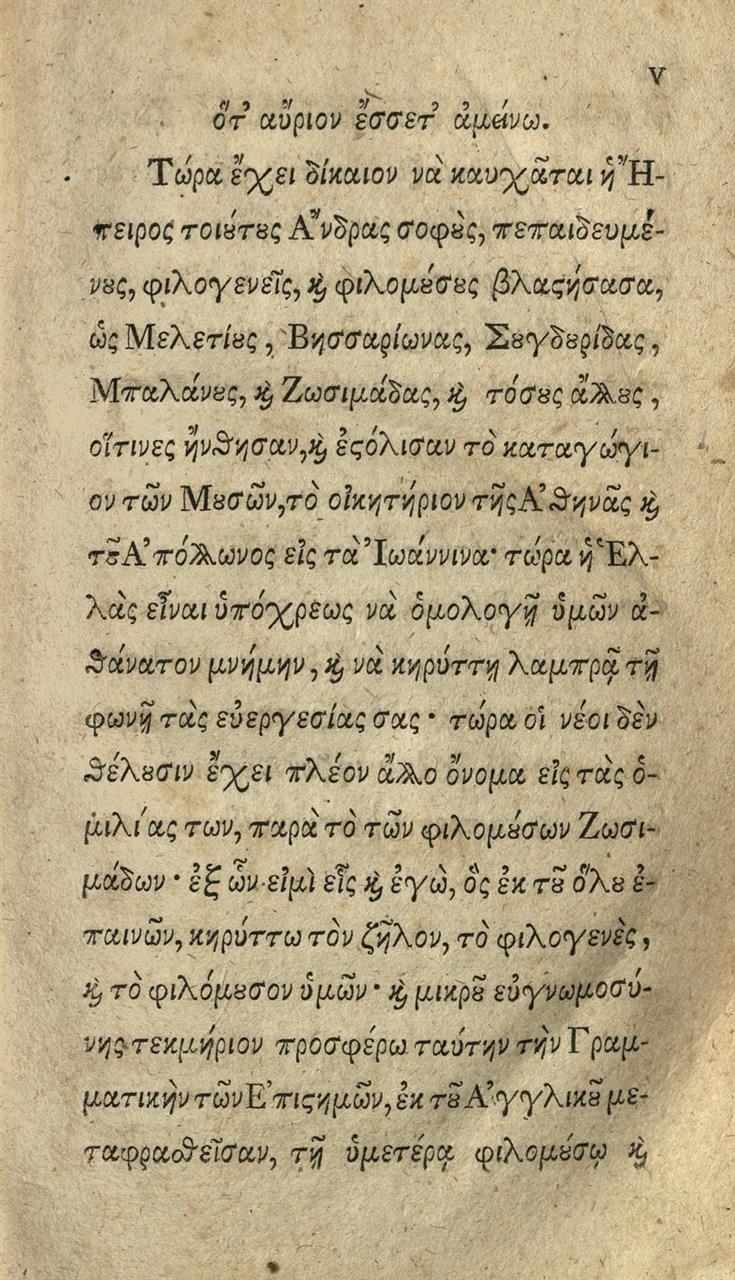 V
ὅτ' αὔριον ἔσσετ' ἀμείνω.
Τώρα ἔχει δίκαιον νὰ καυχᾶται ἡ Ἤ-
πειρος τοιȣ́τȣς Ἄνδρας σοφȣ̀ς, πεπαιδευμέ-
νȣς, φιλογενεῖς, ϗ φιλομȣ́σȣς βλαϛήσασα,
ὡς Μελετίȣς, Βησσαρίωνας, Σȣγδȣρίδας,
Μπαλάνȣς, ϗ Ζωσιμάδας, ϗ τόσȣς ἄλλȣς,
οἵτινες ἤνθησαν, ϗ ἐϛόλισαν τὸ καταγώγι-
ον τῶν Μȣσῶν, τὸ οἰκητήριον τῆς Ἀθηνᾶς ϗ
τȣ͂ Ἀπόλλωνος εἰς τὰ Ἰωάννινα· τώρα ἡ Ἑλ-
λὰς εἶναι ὑπόχρεως νὰ ὁμολογῇ ὑμῶν ἀ-
θάνατον μνήμην, ϗ νὰ κηρύττῃ λαμπρᾷ τῇ
φωνῇ τὰς εὐεργεσίας σας· τώρα οἱ νέοι δὲν
θέλȣσιν ἔχει πλέον ἄλλο ὄνομα εἰς τὰς ὁ-
μιλίας των, παρὰ τὸ τῶν φιλομȣ́σων Ζωσι-
μάδων· ἐξ ὧν εἰμὶ εἷς ϗ ἐγὼ, ὃς ἐκ τȣ͂ ὅλȣ ἐ-
παινῶν, κηρύττω τὸν ζῆλον, τὸ φιλογενὲς,
ϗ τὸ φιλόμȣσον ὑμῶν· ϗ μικρȣ͂ εὐγνωμοσύ-
νης τεκμήριον προσφέρω ταύτην τὴν Γραμ-
ματικὴν τῶν Ἐπιϛημῶν, ἐκ τȣ͂ Ἀγγλικȣ͂ με-
ταφραθεῖσαν, τῇ ὑμετέρᾳ φιλομȣ́σῳ ϗ